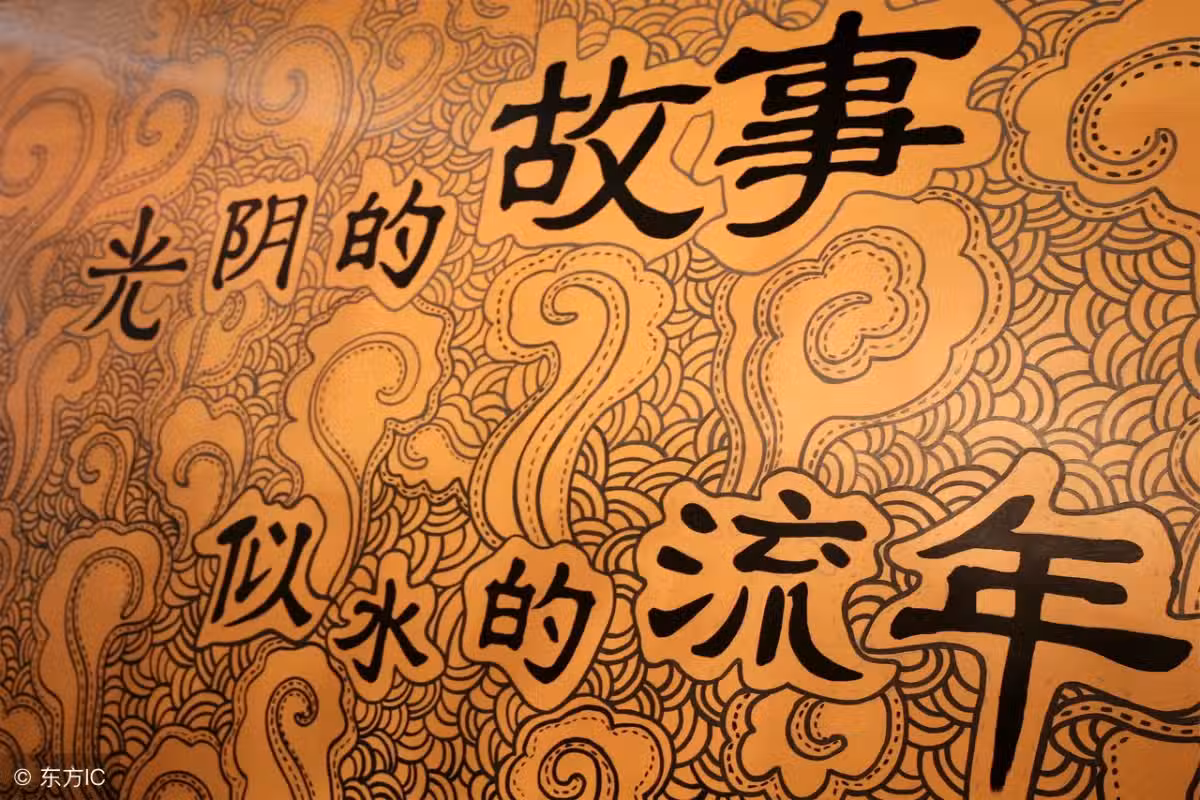 光阴的故事
似水的流年
© 东方IC